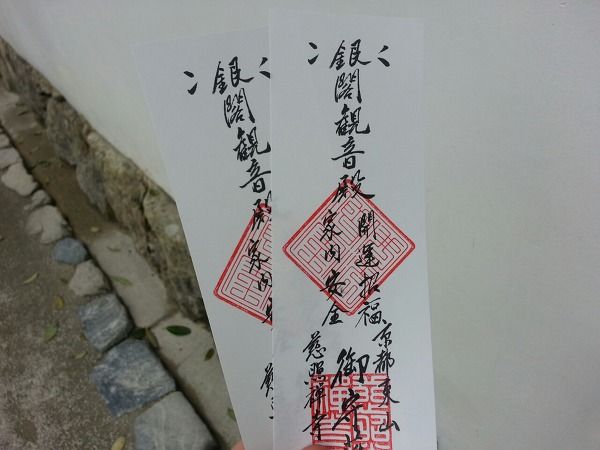 銀閣観音殿
開運招福
京都東山
家内安全
慈照禅寺
御守
銀閣観音殿
家内安
慈